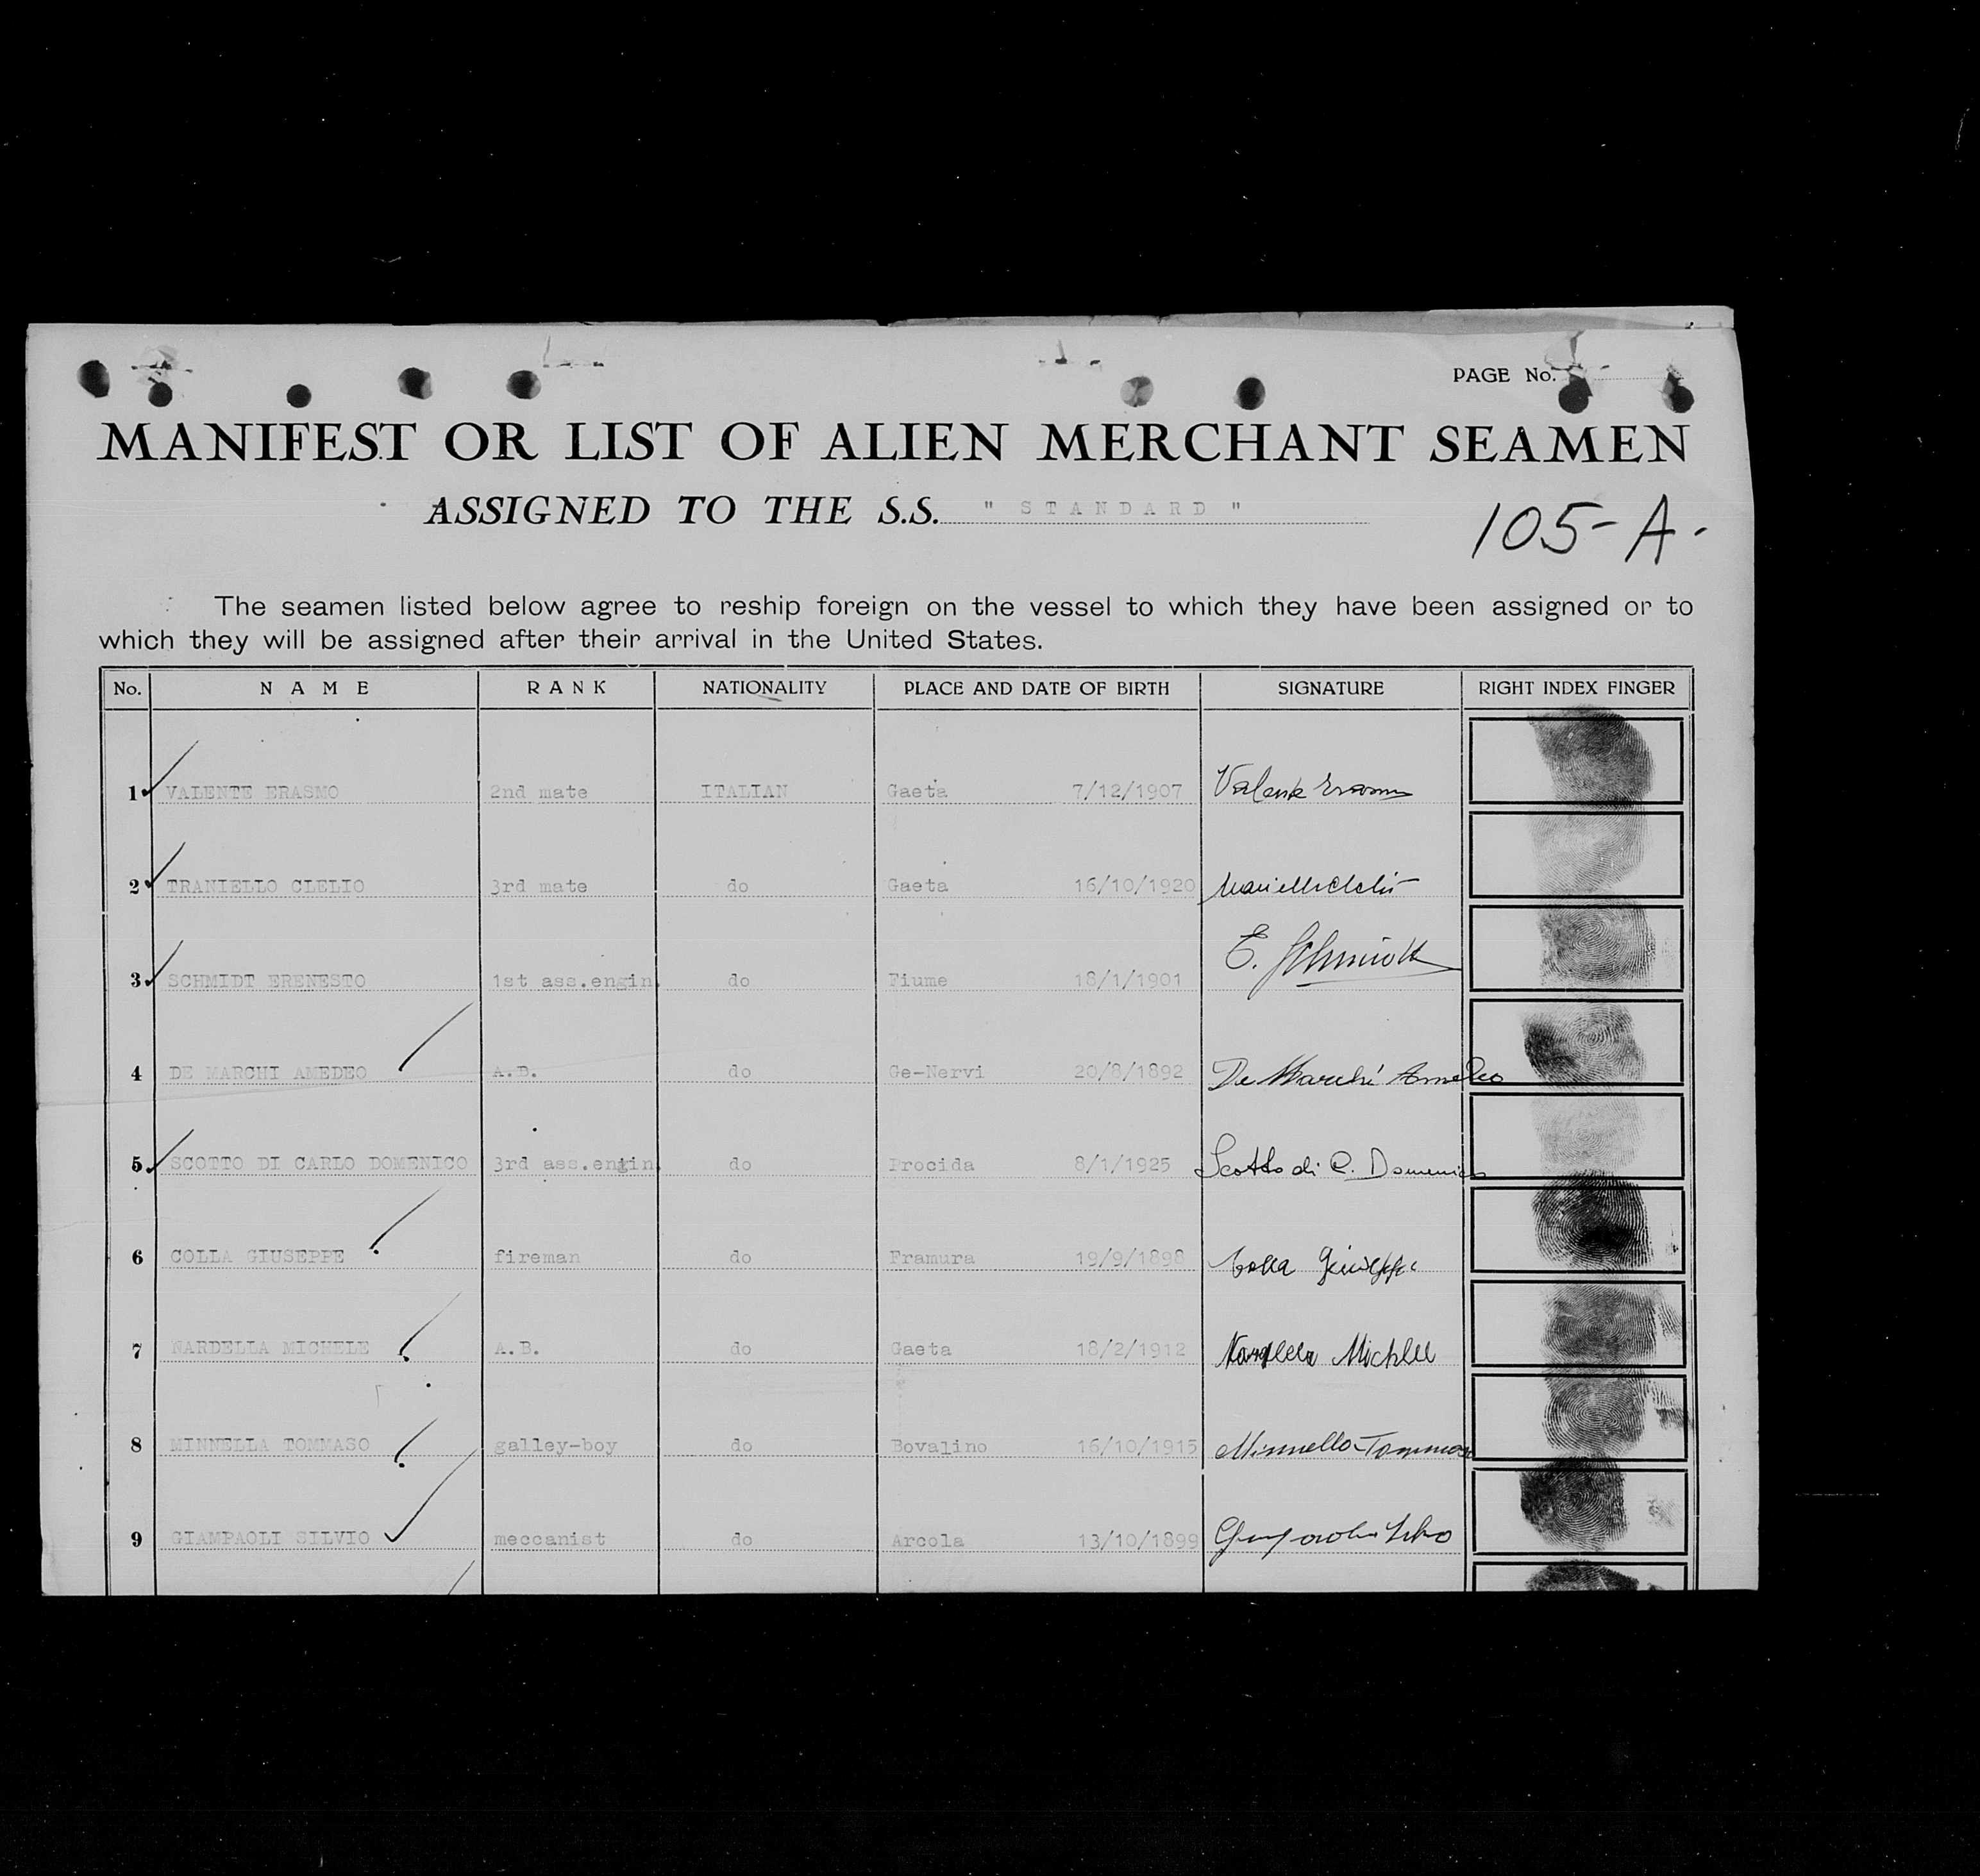 PAGE No.
MANIFEST OR LIST OF ALIEN MERCHANT SEAMEN
ASSIGNED TO THE S.S. " STANDARD "
105-A-
The seamen listed below agree to reship foreign on the vessel to which they have been assigned or to
which they will be assigned after their arrival in the United States.
No. NAME RANK NATIONALITY PLACE AND DATE OF BIRTH SIGNATURE RIGHT INDEX FINGER
1 VALENTE ERASMO 2nd mate ITALIAN Gaeta 7/12/1907 Valente Erasmo
2 TRANIELLO CLELIO 3rd mate do Gaeta 16/10/1920 Traniello Clelio
3 SCHMIDT ERENESTO 1st ass.engin. do Fiume 18/1/1901 E. Schmidt
4 DE MARCHI AMEDEO A.B. do Ge-Nervi 20/8/1892 De Marchi Amedeo
5 SCOTTO DI CARLO DOMENICO 3rd ass.engin. do Procida 8/1/1925 Scotto di C. Domenico
6 COLLA GIUSEPPE fireman do Framura 19/9/1898 Colla Giuseppe
7 NARDELLA MICHELE A.B. do Gaeta 18/2/1912 Nardella Michele
8 MINNELLA TOMMASO galley-boy do Bovalino 16/10/1915 Minnella Tommaso
9 GIAMPAOLI SILVIO meccanist do Arcola 13/10/1899 Giampaoli Silvio